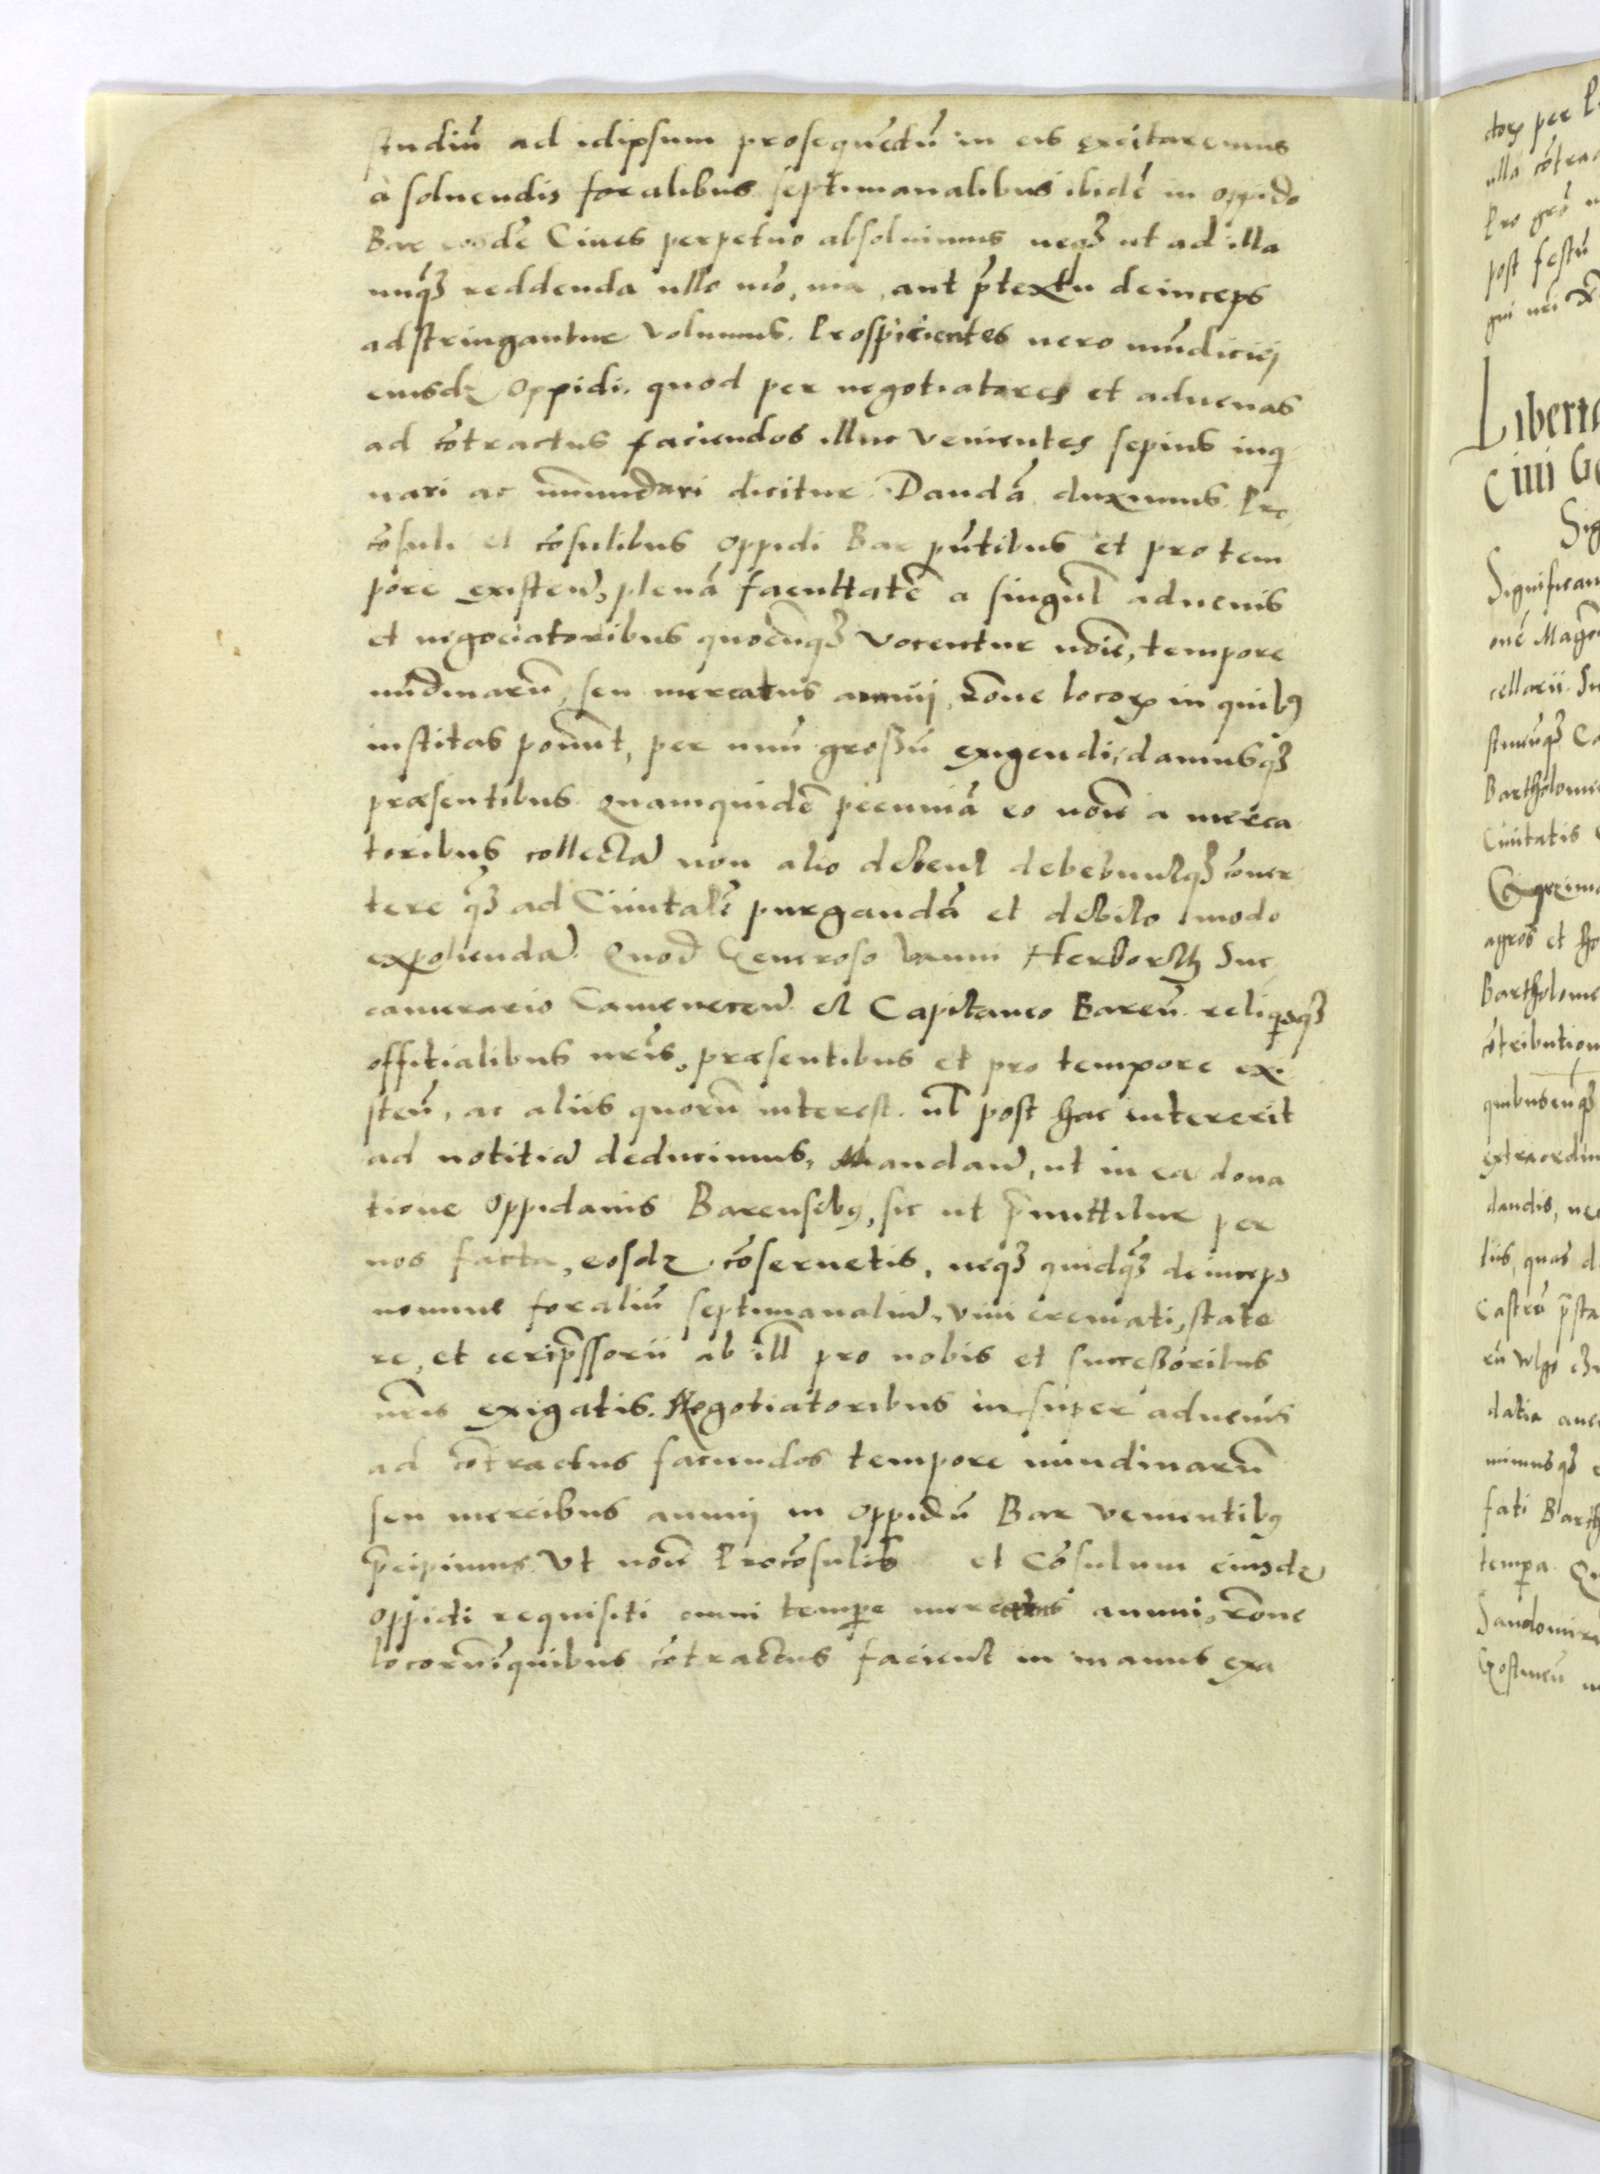 studiū ad idipsum prosequēdū in eis excitaremus
a soluendis foralibus septimanalibus ibidē in oppido
Bar eosdē Ciues perpetuo absoluimus neqȝ ut ad illa
unq̄ȝ reddenda ullo mō, via, aut p̄textu deinceps
adstringantur volumus. Prospicientes vero mūdiciej
eiusdꝫ oppidi. quod per negotiatores et aduenas
ad cōtractus faciendos illuc venientes sepius inqi
nari ac īmundari dicitur. Dandā duximus. Pro
cōsuli et cōsulibus oppidi Bar pn̄tibus et pro tem
pore existeñ, plenā facultatē a singul̄ aduenis
et negociatoribus quocūqȝ vocentur nōie, tempore
nūdinarū, seu mercatus annuj, rōne locoꝝ in quibꝰ
institas ponūt, per unū grossū exigendi, damusqȝ
præsentibus. Quamquidē pecuniā eo nōie a merca
toribus collectā non alio debent debebuntqȝ cōuer
tere q̄ȝ ad Ciuitatē purgandā et debito modo
expoliendā. Quod Generoso Vanni Herborth Suc
camerario Camenecen̄. et Capitaneo Baren̄. reliqsqȝ
offitialibus nr̄is, præsentibus et pro tempore exi
sten̄, ac aliis quorū interest. ul̄ post hac intererit
ad notitiā deducimus, Mandan̄, ut in ea dona
tione oppidanis Barensibꝰ, sic ut p̄mittitur per
nos facta, eosdꝫ cōseruetis, neqȝ quidq̄ȝ deinceps
nomine foraliū septimanaliū, vini cremati, state
re, et cerip̄ssorii ab ill̄ pro nobis et successoribus
nr̄is exigatis. Negotiatoribus insuper aduenis
ad cōtractus faciendos tempore nundinarū
seu mercibus annuj in oppidū Bar venientibꝰ
p̄cipimus. Ut nōie Procōsulis et Cōsulum eiusdꝫ
oppidi requisiti omni tempe mercatus annui, rōne
locorū ī quibus cōtractus facient in manus exa
ctoꝝ per
ulla cōtra
Pro
post festū
Liberta
Ciui
Significam
cellarii.
Bartholome
Ciuitatis
agros et
Bartholome
cōtribution
quibuscūqȝ
extraordin
dandis,
tiis, quas
Castrū p̄sta
fati Barth
tempa.
Sandomir